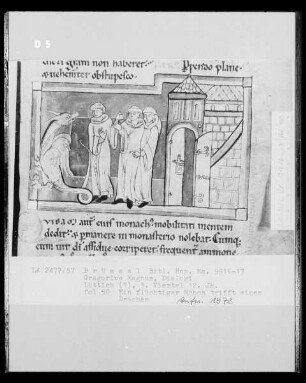 D 5
cuei quam non haberer
& uehemter obstupesco.
Perpendo plane
aut eius monach mobilitati mentem
dedit & pmanere in monasterio nolebat. Cumq;
eum uir di assidue corriperet frequent ammone
Le 8477/57 Brüssel Bibl. Roy. Hs. 9916-17
Gregorius Magnus, Dialogi
Lüttich (?), 2. Viertel 12. Jh.
Fol 60 Ein flüchtiger Mönch trifft einen
Drachen
1972